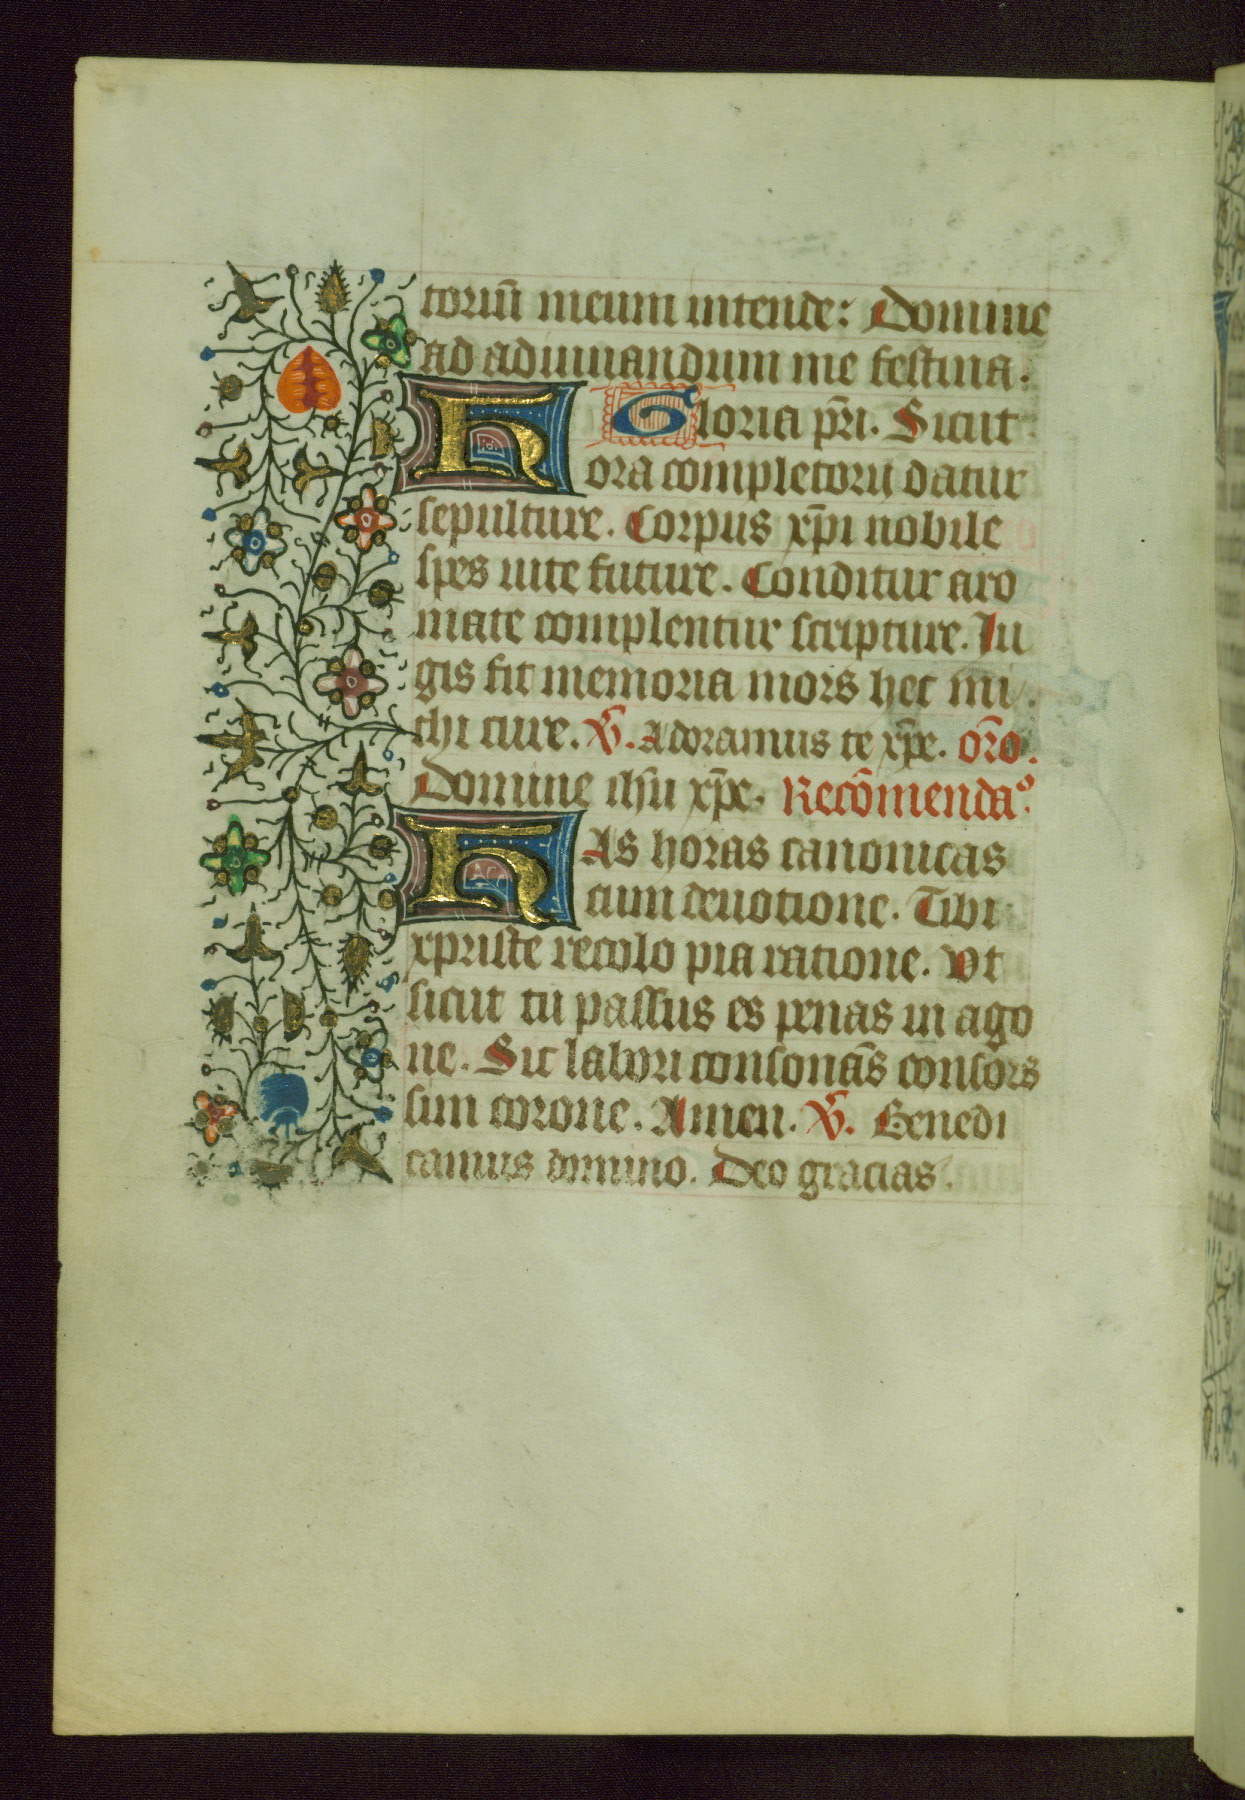 toriū meum intende: Domine
ad adiuuandum me festina.
Gloria pr̄i. Sicut
Hora completorii datur
sepulture. Corpus xp̄i nobile
spes uite future. Conditur aro
mate complentur scripture. Iu
gis sit memoria mors hec mi
chi cure. ℣. Adoramus te xp̄e. or̄o.
Domine ihu xp̄e. Recōmendaº.
Has horas canonicas
cum deuotione. Tibi
xpriste recolo pia ratione. Vt
sicut tu passus es penas in ago
ne. Sic labori consonās consors
sim corone. Amen. ℣. Benedi
camus domino. Deo gracias.